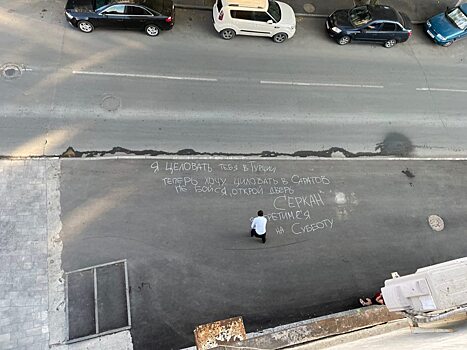 Я ЦЕЛОВАТЬ ТЕБЯ В ТУРЦИИ
ТЕПЕРЬ ХОЧУ ЦИЛОВАТЬ В САРАТОВ
НЕ БОЙСЯ ОТКРОЙ ДВЕРЬ
СЕРКАН
РЕТИМСЯ
НА СУББОТУ